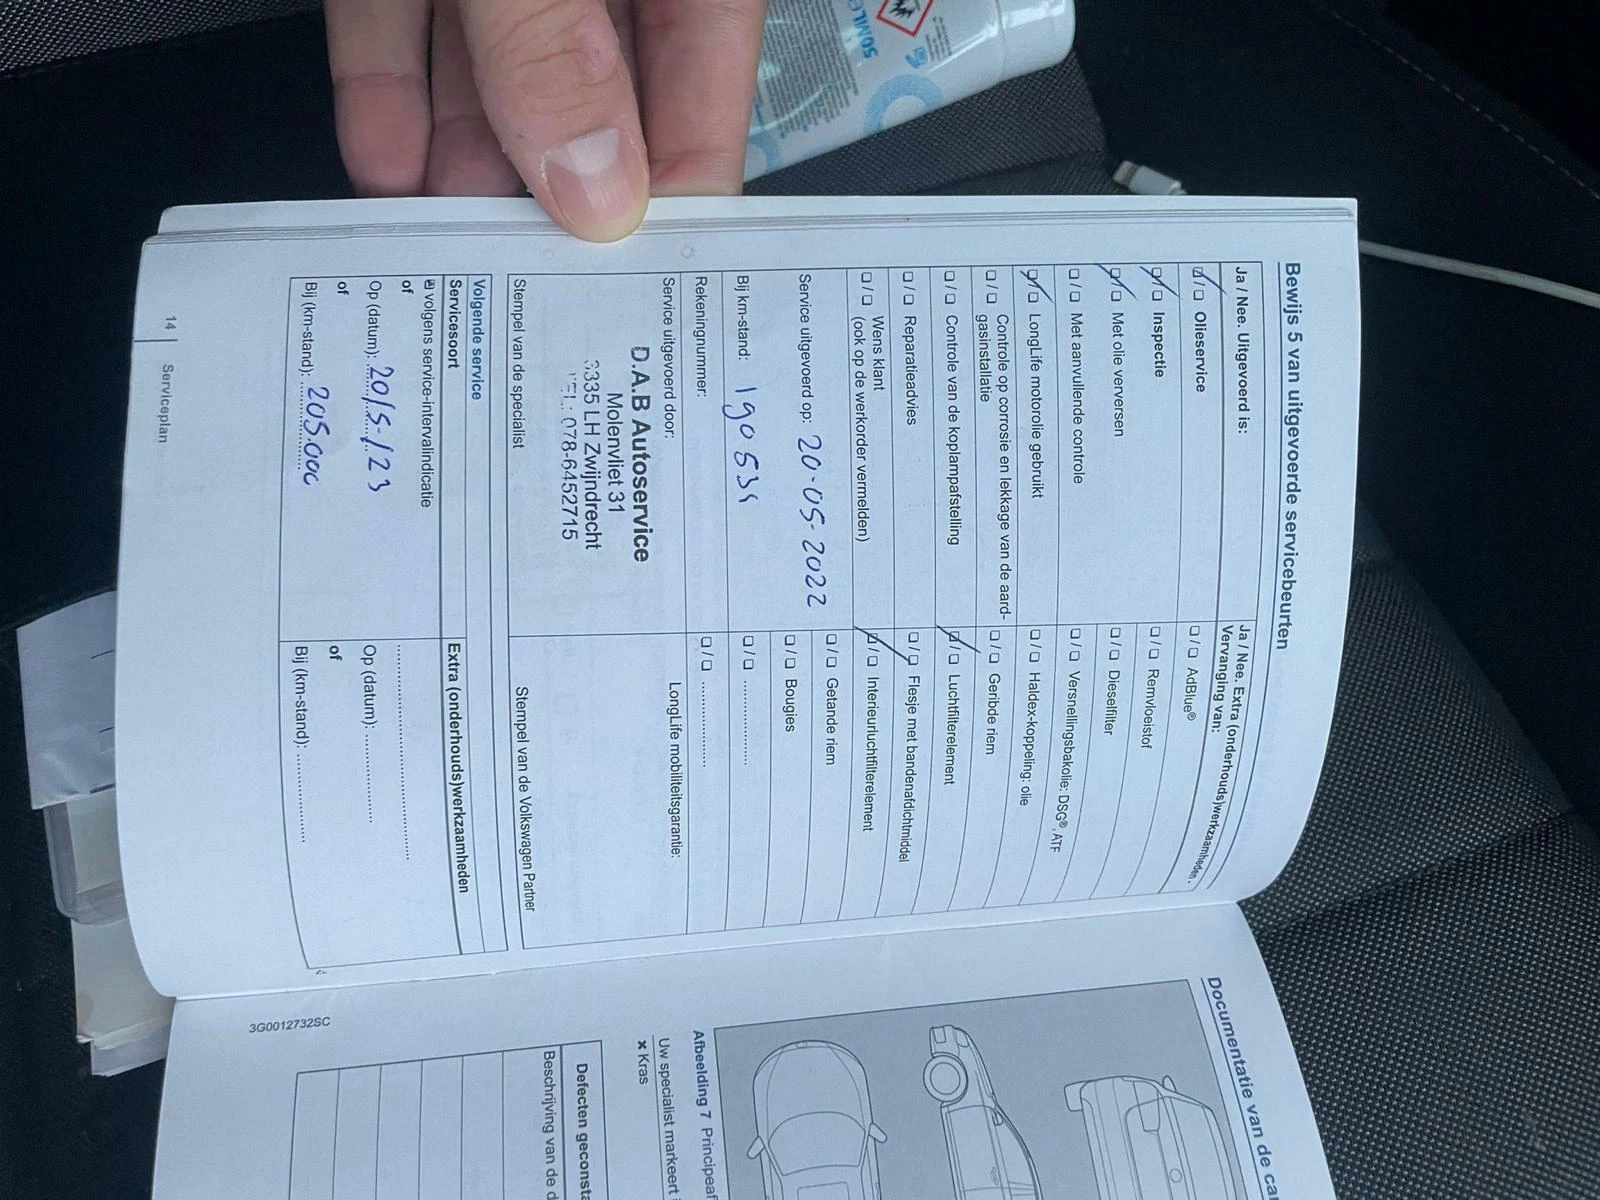 Bewijs 5 van uitgevoerde servicebeurten
Ja / Nee. Uitgevoerd is:
Olieservice
Inspectie
Met olie verversen
Met aanvullende controle
LongLife motorolie gebruikt
Controle op corrosie en lekkage van de aard-
gasinstallatie
Controle van de koplampafstelling
Reparatieadvies
Wens klant
(ook op de werkorder vermelden)
Service uitgevoerd op: 20-05-2022
Bij km-stand: 190 535
Rekeningnummer:
Service uitgevoerd door:
D.A.B Autoservice
Molenvliet 31
3335 LH Zwijndrecht
TEL: 078-6452715
Stempel van de specialist
Ja / Nee. Extra (onderhouds)werkzaamheden.
Vervanging van:
AdBlue®
Remvloeistof
Dieselfilter
Versnellingsbakolie: DSG®, ATF
Haldex-koppeling: olie
Geribde riem
Luchtfilterelement
Flesje met bandenafdichtmiddel
Interieurluchtfilterelement
Getande riem
Bougies
LongLife mobiliteitsgarantie:
Stempel van de Volkswagen Partner
Volgende service
Servicesoort
volgens service-intervalindicatie
of
Op (datum): 20/5/23
of
Bij (km-stand): 205.000
Extra (onderhouds)werkzaamheden
Op (datum):
of
Bij (km-stand):
14 Serviceplan
3G0012732SC
Documentatie van de
Afbeelding 7
Uw specialist markeert
× Kras
Defecten
Beschrijving van de
50ML